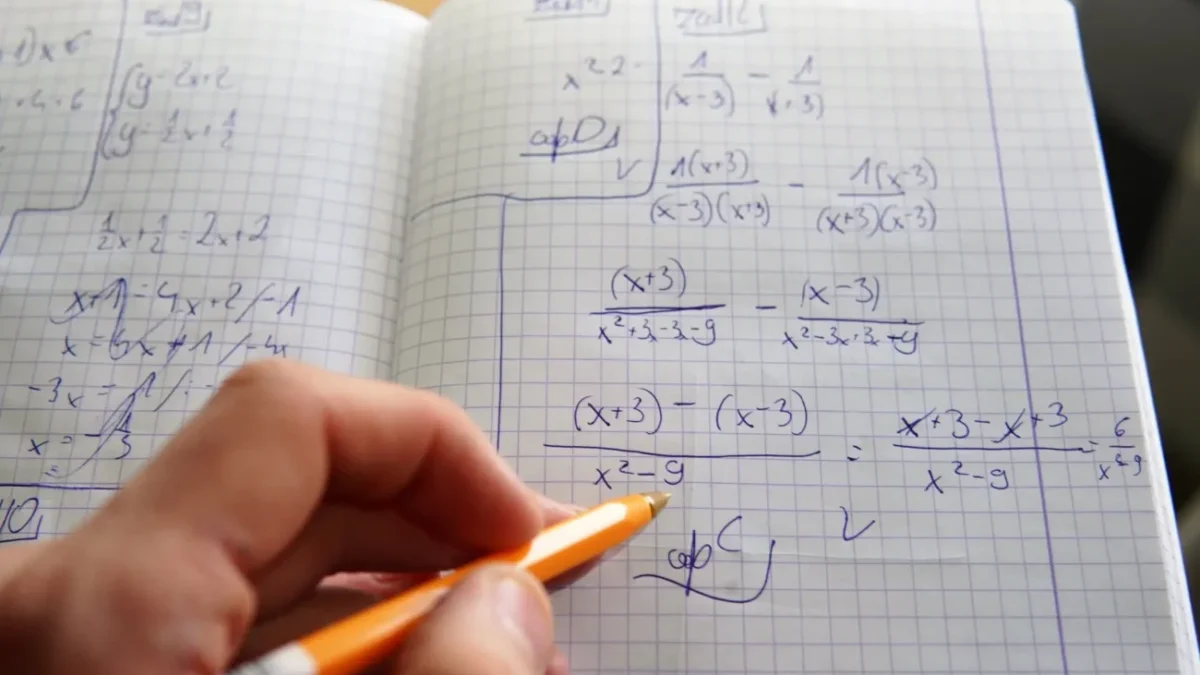 1) x 6
+ 4 = 6
{y = 2x + 2
{y = 1/2 x + 1/2
1/2 x + 1/2 = 2x + 2
x + 1 = 4x + 2 / -1
-3x =
10
x² - 2
odp D
1/(x-3) - 1/(x+3)
1(x+3)/(x-3)(x+3) - 1(x-3)/(x+3)(x-3)
(x+3)/x²+3x-3x-9 - (x-3)/x²-3x+3x-9
(x+3) - (x-3)/x²-9 = x+3-x+3/x²-9 = 6/x²-9
odp C